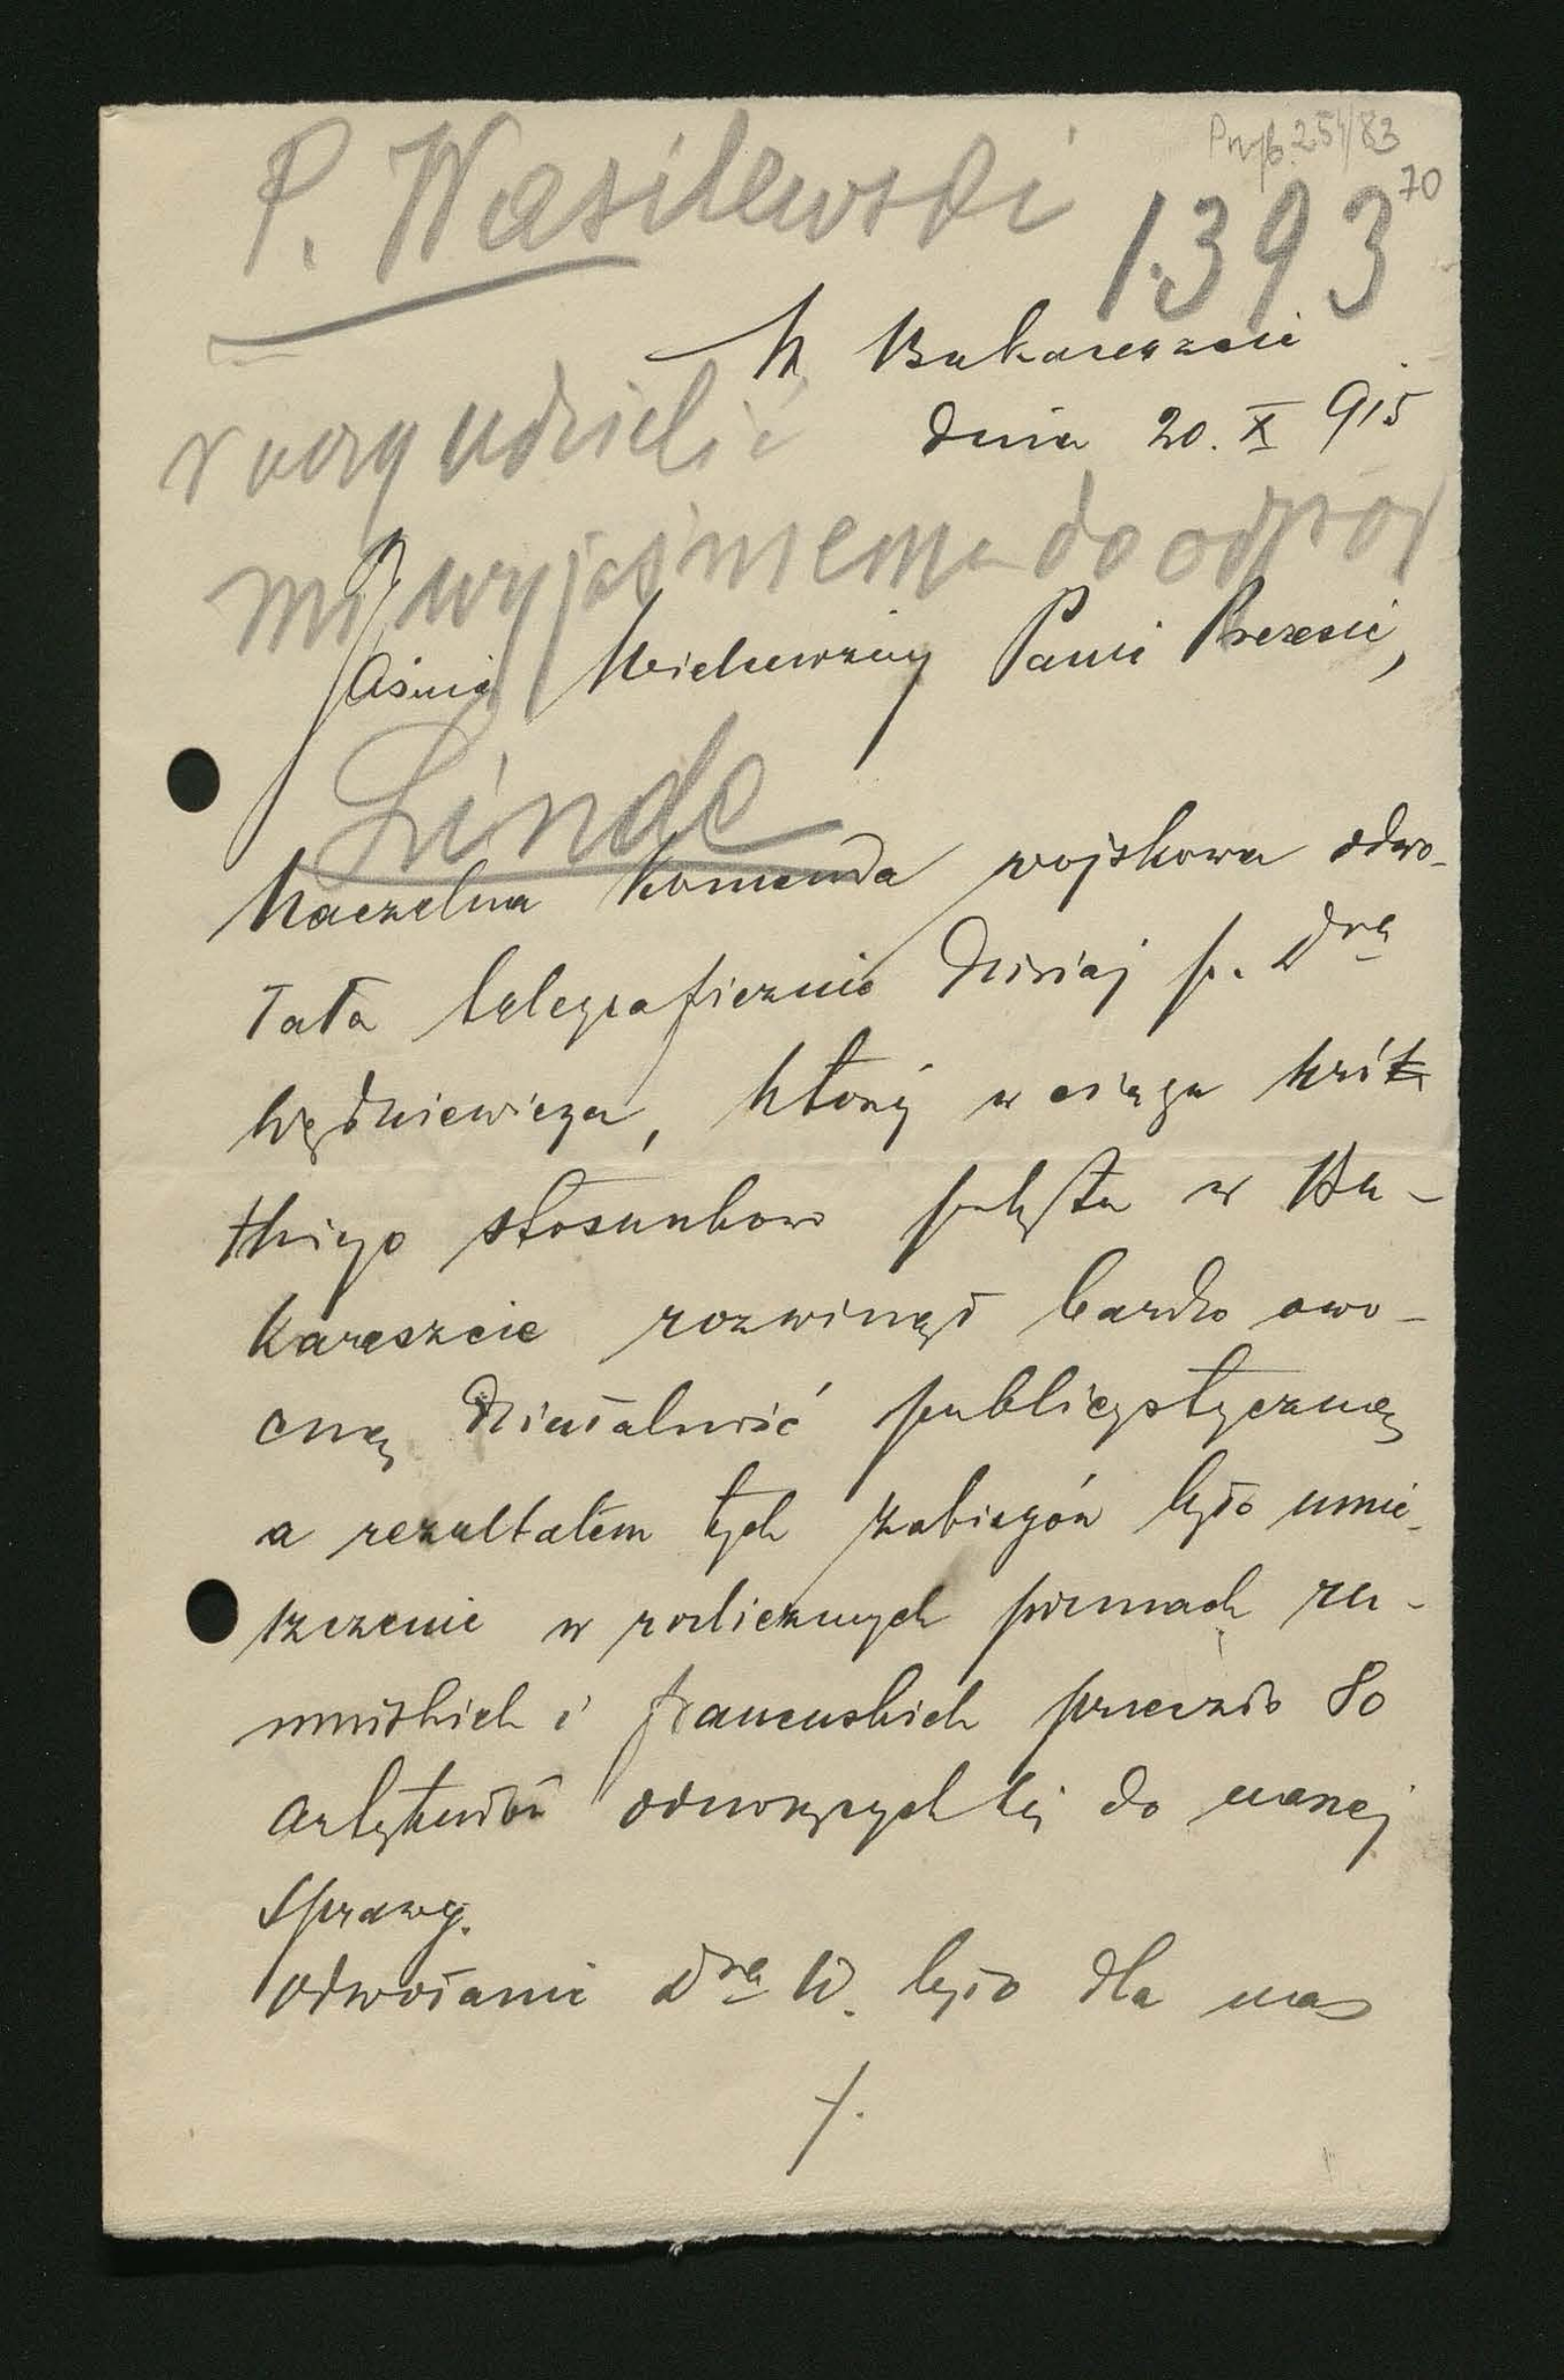 Przyb. 254/83
70
P. Wasilewski
1393
W Bukareszcie
dnia 20. X 915
raczy udzielić
mi wyjaśnienia do odpow
Jaśnie Wielmożny Panie Prezesie,
Linde
Naczelna Komenda wojskowa odwo-
łała telegraficznie dzisiaj p. Dra
Wędkiewicza, który w ciągu krót
tkiego stosunkowo pobytu w Bu-
kareszcie rozwinął bardzo owo-
cną działalność publicystyczną
a rezultatem tych zabiegów było umie-
szczenie w rozlicznych pismach ru-
muńskich i francuskich przeszło 80
artykułów odnoszących się do naszej
sprawy.
Odwołanie Dra W. było dla nas
./.